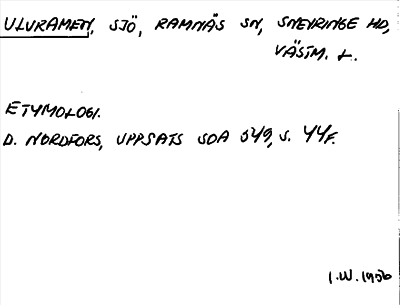 ULVRAMEN, SJÖ, RAMNÄS SN, SNEVRINGE HD,
VÄSTM. L.
ETYMOLOGI.
D. NORDFORS, UPPSATS SOA 549, S. 44 F.
I.W. 1956